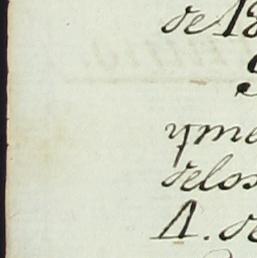 de 18
yme
delos
A. de